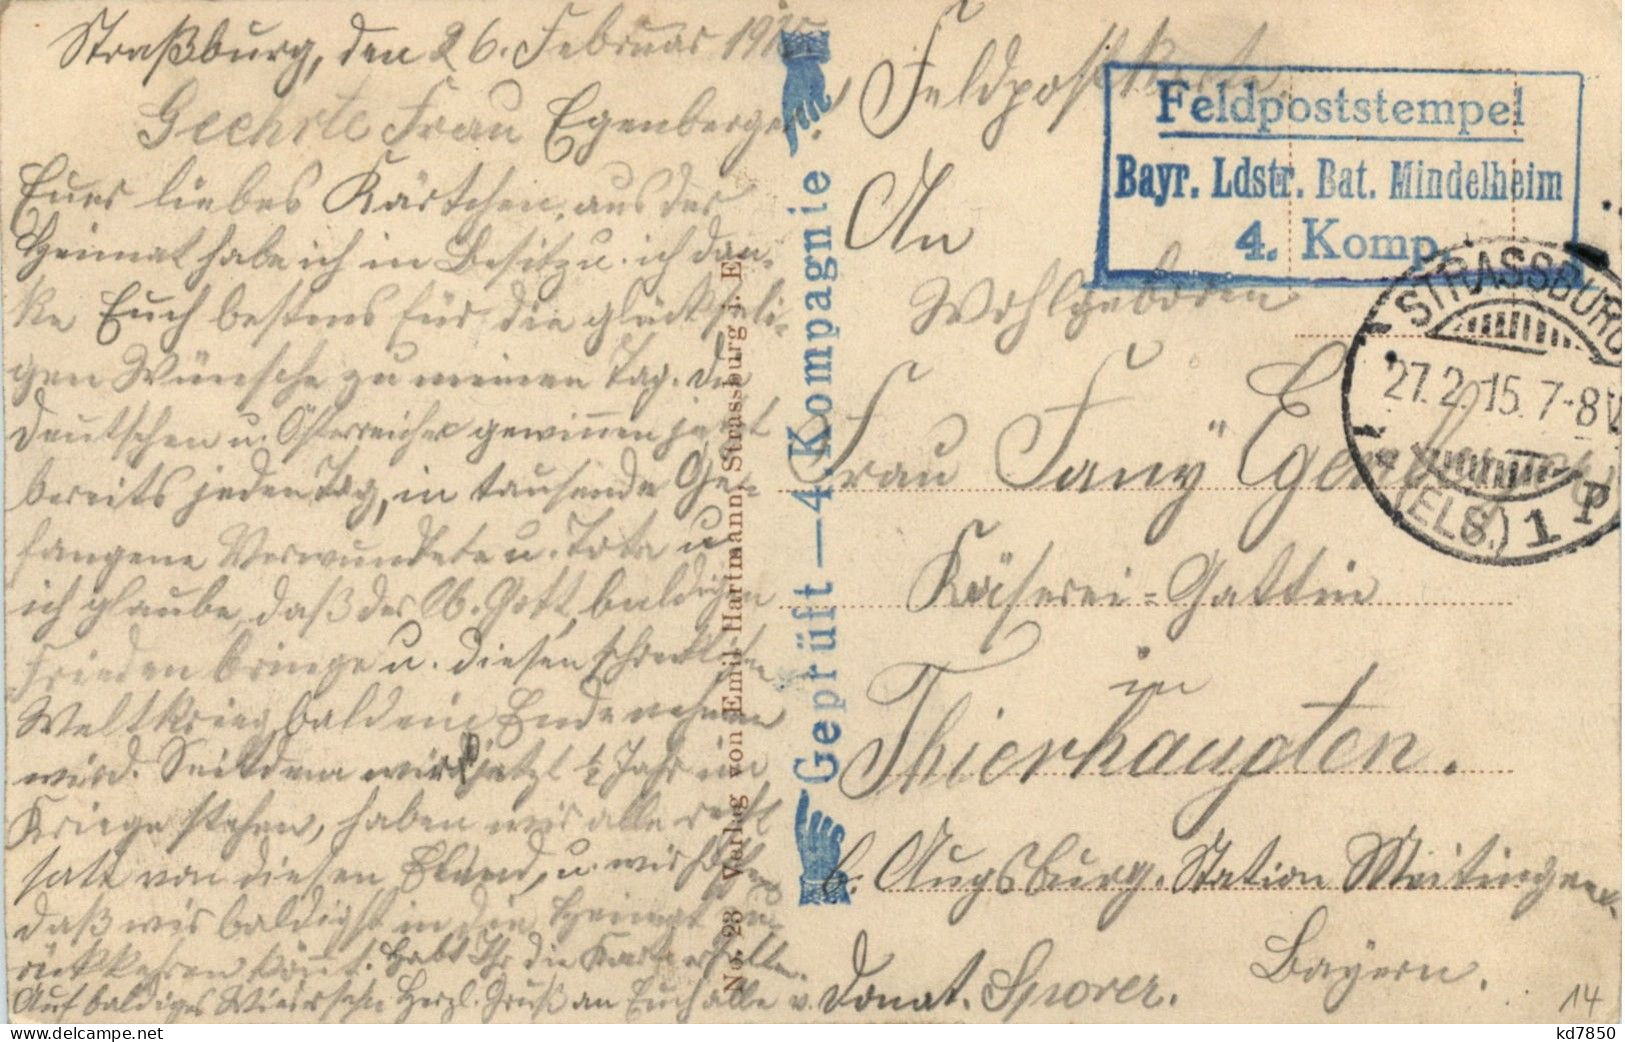 Straßburg, den 26. Februar 1915
Geehrte Frau Egenberger!
Euer liebes Kärtchen, aus der
Heimat habe ich in Besitz u. ich dan-
ke Euch bestens für die glückseli-
gen Wünsche zu meinen Tag. Die
Deutschen u. Österreicher gewinnen jetzt
bereits jeden Tag, in tausende Ge-
fangene Verwundete u. Tote u.
ich glaube, daß der lb. Gott, baldigen
Frieden bringe u. diesen schrecklichen
Weltkrieg bald ein Ende nehmen
wird. Seitdem wir jetzt ½ Jahr im
Kriege stehen, haben wir alle recht
satt von diesen Elend, u. wir hoffen
daß wir baldigst in die Heimat zu-
rückkehren könnt. Habt Ihr die Karte erhalten.
Auf baldiges Wiedersehn Herzl. Gruß an Euch alle v. Donat. Sporer.
No. 23 Verlag von Emil Hartmann, Strassburg i. E.
Geprüft — 4. Kompagnie
Feldpostkarte
Feldpoststempel
Bayr. Ldstr. Bat. Mindelheim
4. Komp.
STRASSBURG
27.2.15. 7-8V
(ELS.) 1 P
An
Wohlgeboren
Frau Fany Egenberger
Käserei-Gattin
in
Thierhaupten.
b. Augsburg. Station Meitingen.
Bayern.
14
kd7850